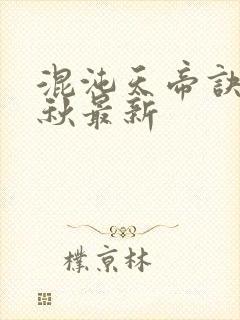 混沌天帝訣
秋最新
樸京林